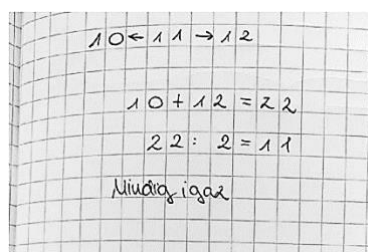 10 ← 11 → 12
10 + 12 = 22
22 : 2 = 11
Mindig igaz